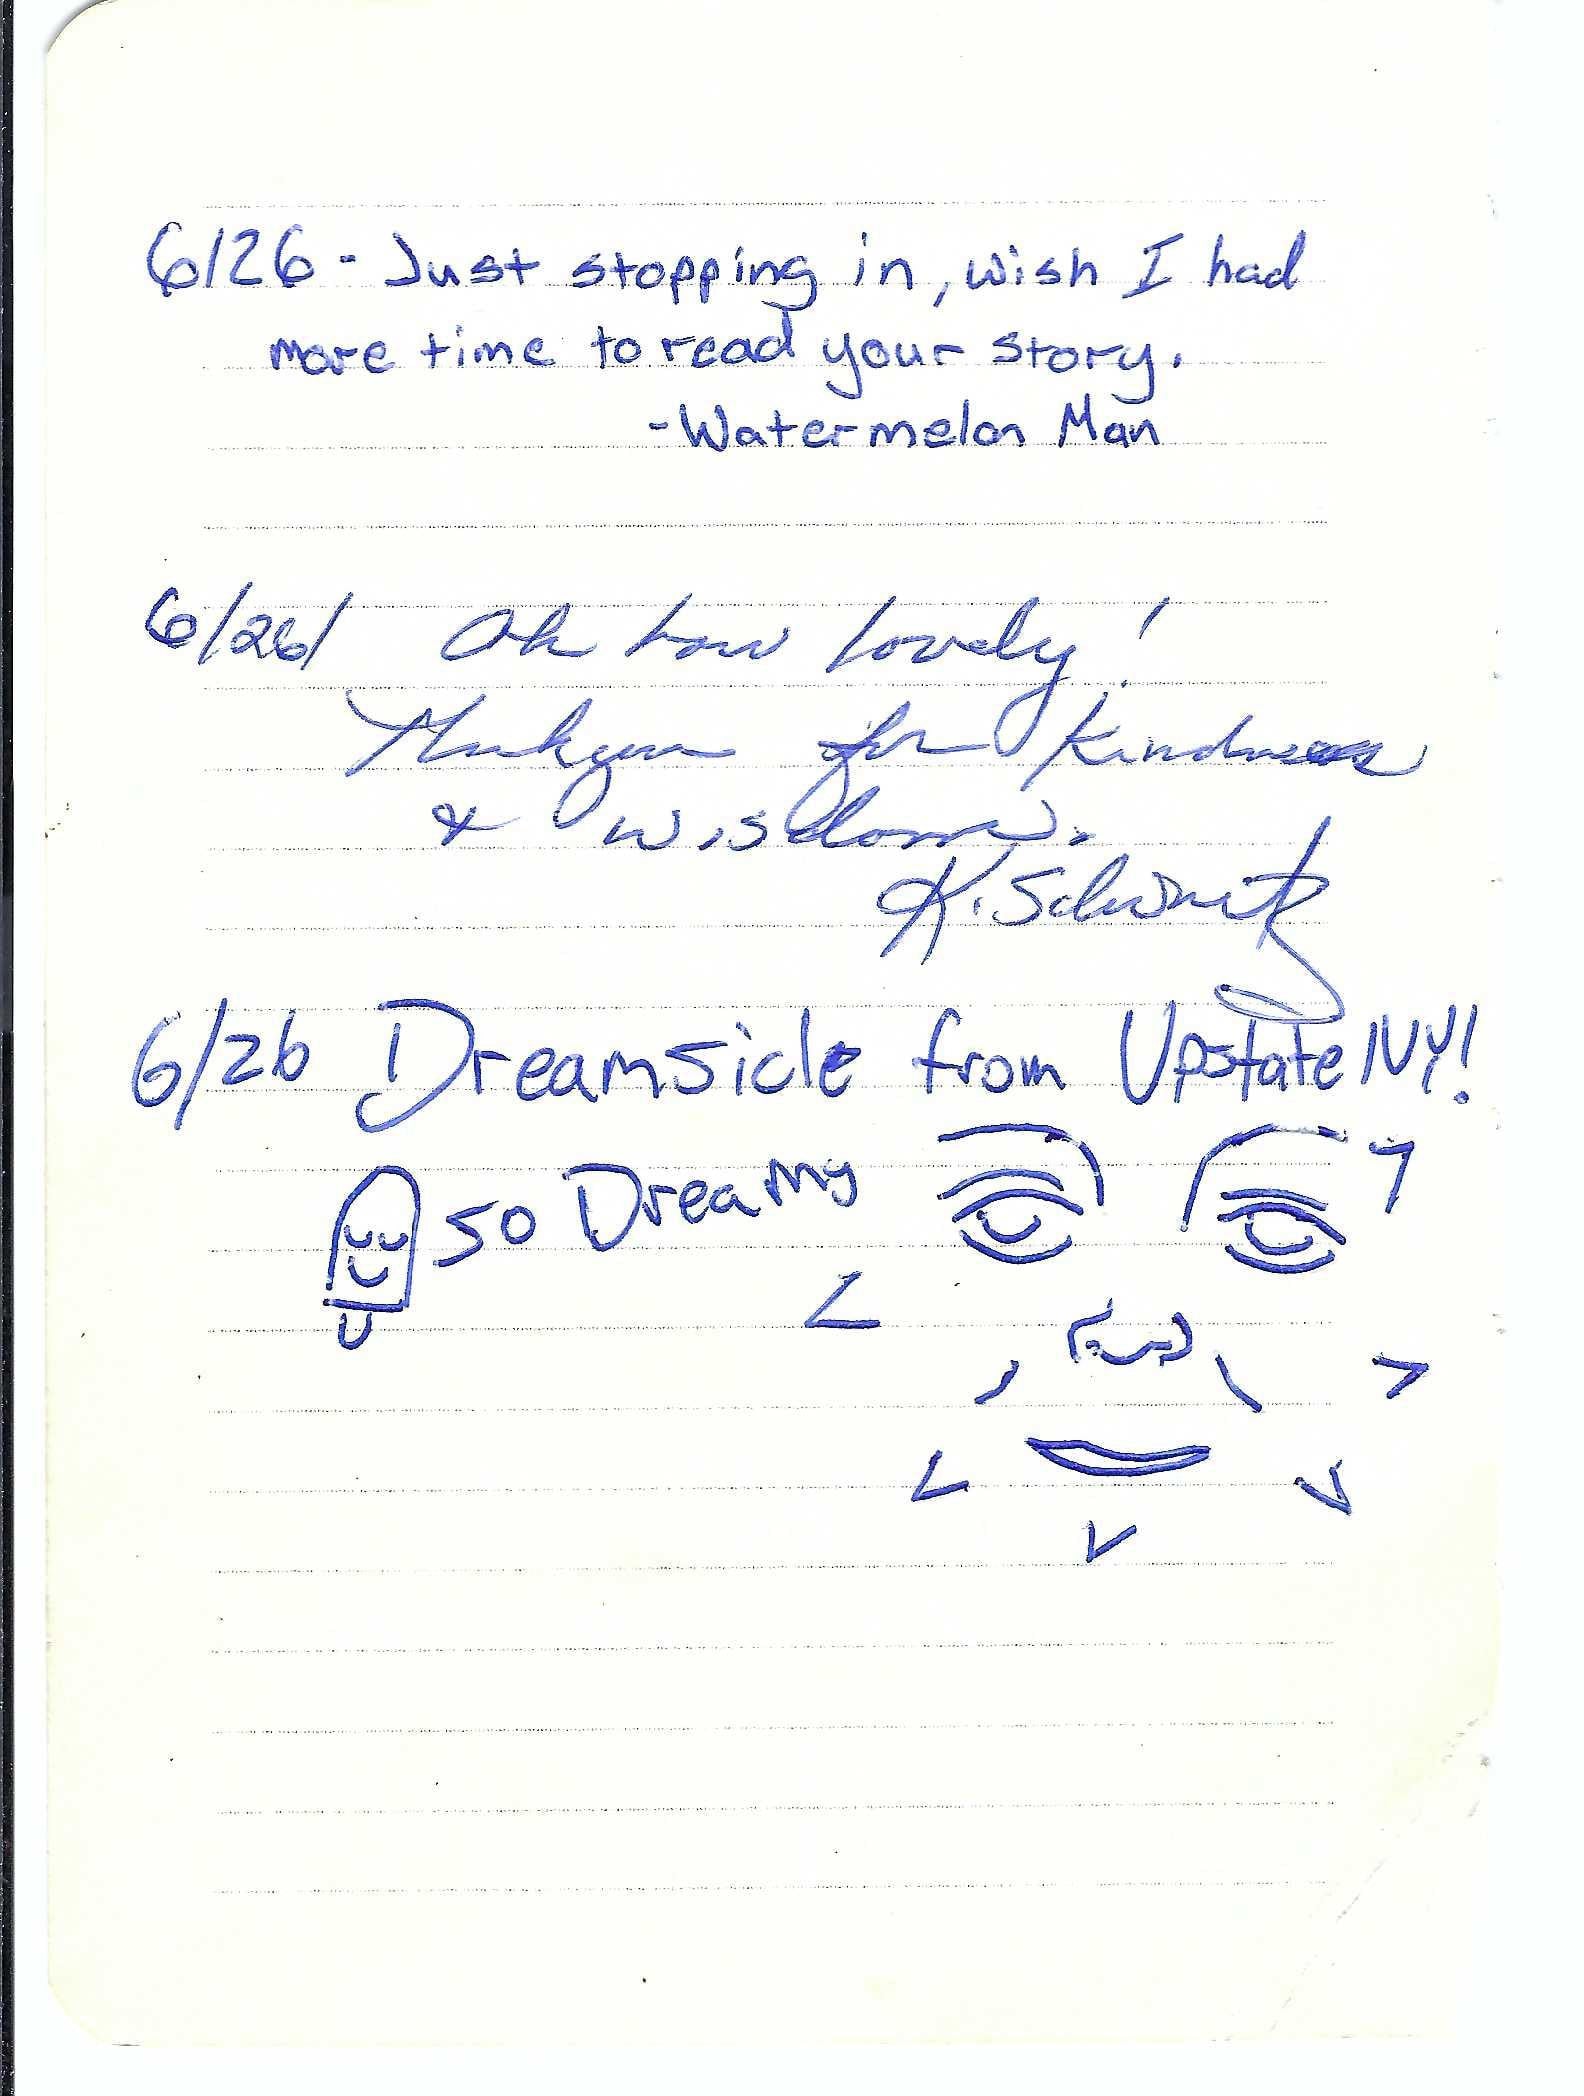 6/26 - Just stopping in, wish I had
more time to read your story.
- Watermelon Man
6/26/ Oh how lovely!
Thankyou for Kindness
& wisdom.
K. Schmitz
6/26 Dreamsicle from Upstate NY!
so Dreamy